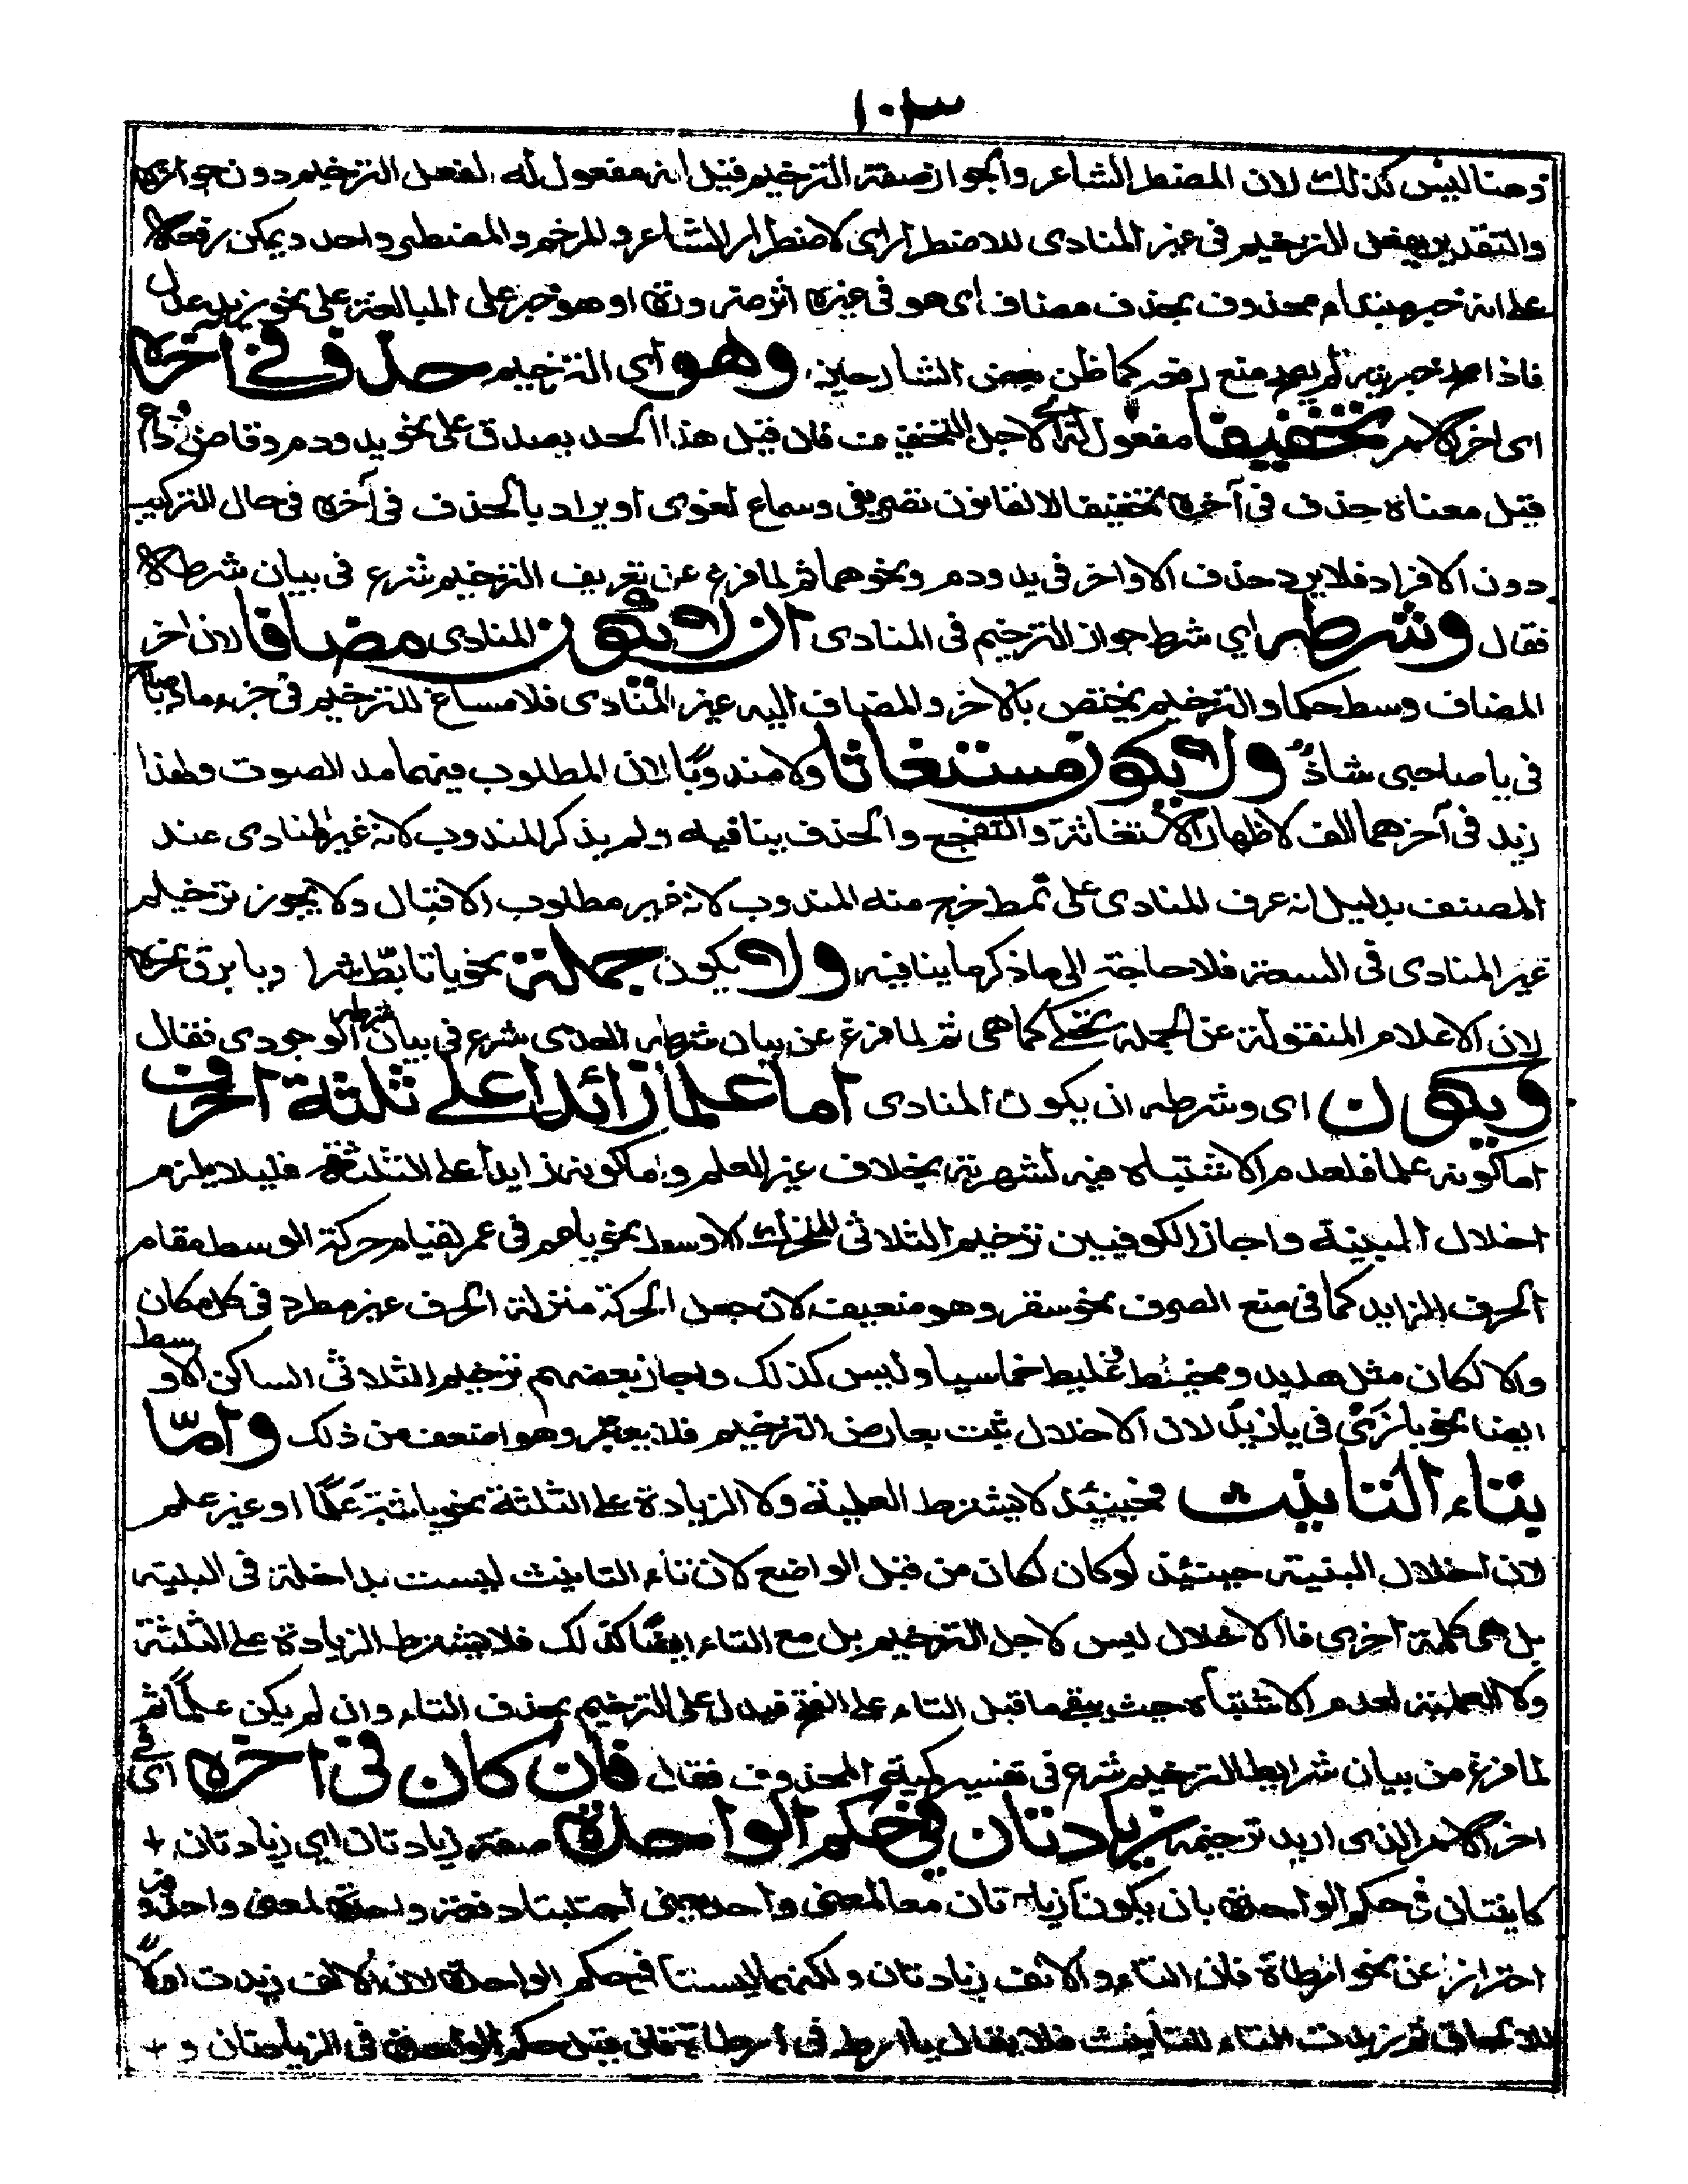 ١٠٣
وهنا ليس كذلك لان المضطر الشاعر والجواز صفة الترخيم قيل انه مفعول له لفعل الترخيم دون جوازه
والتقدير الترخيم فى غير المنادى للاضطرار اى لاضطرار الشاعر والمرخم والمضطر واحد ويمكن رفعه
على انه خبر مبتداء محذوف بحذف مضاف اى هو فى غيره اثر ضرورة او هو خبر على المبالغة على نحو زيد عدل
فاذا لم يصح منع رفعه كما ظن بعض الشارحين وهو اى الترخيم حذف فى آخره
اى اخر الاسم تخفيفا مفعول له اى لاجل التخفيف فان قيل هذا الحد يصدق على نحو يد ودم وقاض وداع
قيل معناه حذف فى آخره تخفيفا لا لقانون تصريفى وسماع لغوى او يراد بالحذف فى آخره فى حال التركيب
دون الافراد فلا يرد حذف الاواخر فى يد ودم ونحوهما ثم لما فرغ عن تعريف الترخيم شرع فى بيان شرطه
فقال وشرطه اي شرط جواز الترخيم فى المنادى ان لا يكون المنادى مضافا لان اخر
المضاف وسط حكما والترخيم يختص بالاخر والمضاف اليه غير المنادى فلا مساغ للترخيم فى جزء ما و يا صاح
فى يا صاحبى شاذ ولا يكون مستغاثا ولا مندوبا لان المطلوب فيهما مد الصوت ولهذا
زيد فى آخرهما الف لاظهار الاستغاثة والتفجع والحذف ينافيه ولم يذكر المندوب لانه غير المنادى عند
المصنف بدليل انه عرف المنادى على نمط خرج منه المندوب لانه غير مطلوب الاقبال ولا يجوز ترخيم
غير المنادى فى السعة فلا حاجة الى ما ذكر ما ينافيه ولا يكون جملة نحو يا تابط شرا ويا برق نحره
لان الاعلام المنقولة عن الجملة تحكى كما هى ثم لما فرغ عن بيان شرطه العدمى شرع فى بيان شرطه الوجودى فقال
ويكون اى وشرطه ان يكون المنادى اما علما زائدا على ثلثة احرف
اما كونه علما فلعدم الاشتباه فيه لشهرته بخلاف غير العلم واما كونه زايدا على الثلثة فلئلا يلزم
اخلال البنية واجاز الكوفيين ترخيم الثلاثى المتحرك الاوسط نحو يا عم فى عمر لقيام حركة الوسط مقام
الحرف الزايد كما فى منع الصرف نحو سقر وهو ضعيف لان جعل الحركة منزلة الحرف غير مطرد فى كل مكان
والا لكان مثل هدبد غليظ خماسيا وليس كذلك واجاز بعضهم ترخيم الثلاثى الساكن الاوسط
ايضا نحو يا زى فى يا زيد لان الاخلال ثبت بعارض الترخيم فلا يعتبر وهو اضعف من ذلك واما
بتاء التانيث فحينئذ لا يشترط العلمية ولا الزيادة على الثلثة نحو يا ثبة علما او غير علم
لان اخلال البنية حينئذ لو كان لكان من قبل الواضع لان تاء التانيث ليست بداخلة فى البنية
بل هى كلمة اخرى فالاخلال ليس لاجل الترخيم بل مع التاء ايضا كذلك فلا يشترط الزيادة على الثلثة
ولا العلمية لعدم الاشتباه حيث يبقى ما قبل التاء على الفتح فيدل على الترخيم بحذف التاء وان لم يكن علما ثم
لما فرغ من بيان شرايط الترخيم شرع فى تفسير كمية المحذوف فقال فان كان فى اخره اى فى
اخر الاسم الذى اريد ترخيمه زيادتان فى حكم الواحدة صفة زيادتان اي زيادتان
كاينتان فى حكم الواحدة بان يكونا زيادتان معا لمعنى واحد يعنى اجتلبتا دفعة واحدة لمعنى واحد وهو
احتراز عن نحو ارطاة فان التاء والالف زيادتان ولكنهما ليستا فى حكم الواحدة لان الالف زيدت اولا
للالحاق ثم زيدت التاء للتانيث فلا يقال يا ارط فى ارطاة فان قيل حكم الواحدة فى الزيادتان و